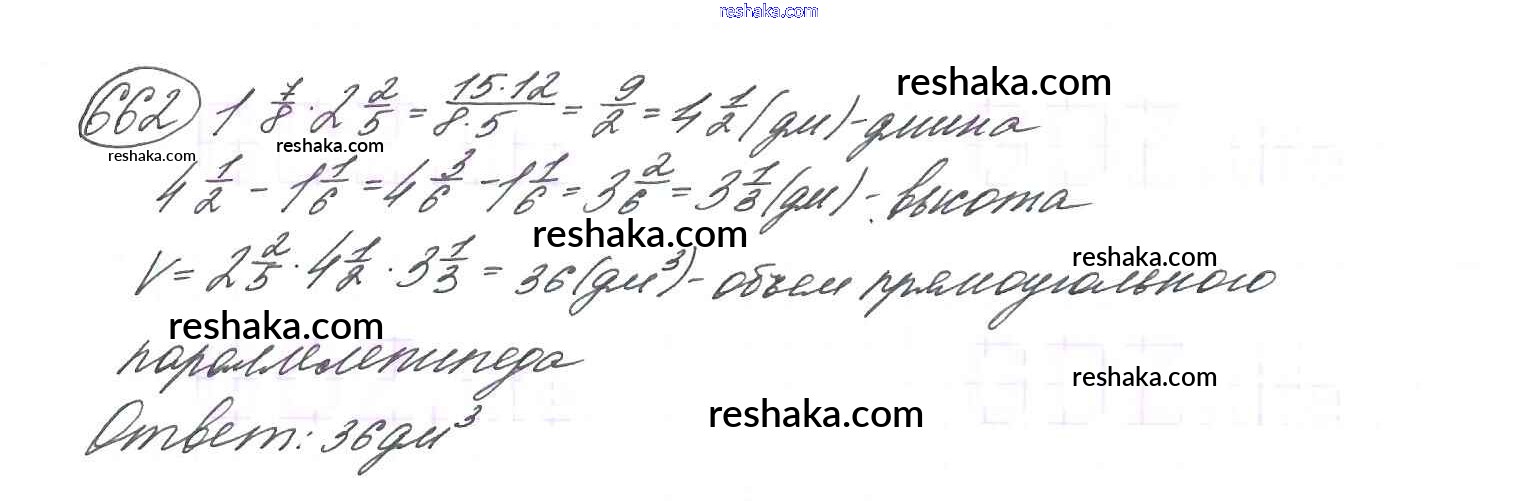 reshaka.com
662 1 7/8 · 2 2/5 = 15·12/8·5 = 9/2 = 4 1/2 (дм) - длина
reshaka.com
reshaka.com reshaka.com
4 1/2 - 1 1/6 = 4 3/6 - 1 1/6 = 3 2/6 = 3 1/3 (дм) - высота
reshaka.com
V = 2 2/5 · 4 1/2 · 3 1/3 = 36 (дм³) - объем прямоугольного
reshaka.com
reshaka.com
параллелепипеда
reshaka.com
reshaka.com
Ответ: 36 дм³